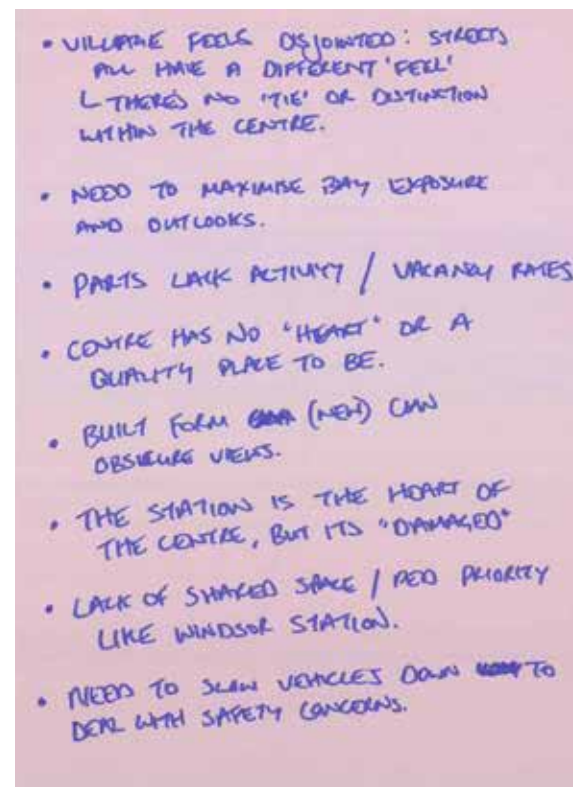 • VILLAGE FEELS DISJOINTED: STREETS
ALL HAVE A DIFFERENT 'FEEL'
└ THERE'S NO 'TIE' OR DISTINCTION
WITHIN THE CENTRE.
• NEED TO MAXIMISE BAY EXPOSURE
AND OUTLOOKS.
• PARTS LACK ACTIVITY / VACANCY RATES
• CENTRE HAS NO 'HEART' OR A
QUALITY PLACE TO BE.
• BUILT FORM (NEW) CAN
OBSCURE VIEWS.
• THE STATION IS THE HEART OF
THE CENTRE, BUT ITS "DAMAGED"
• LACK OF SHARED SPACE / PED PRIORITY
LIKE WINDSOR STATION.
• NEED TO SLOW VEHICLES DOWN TO
DEAL WITH SAFETY CONCERNS.